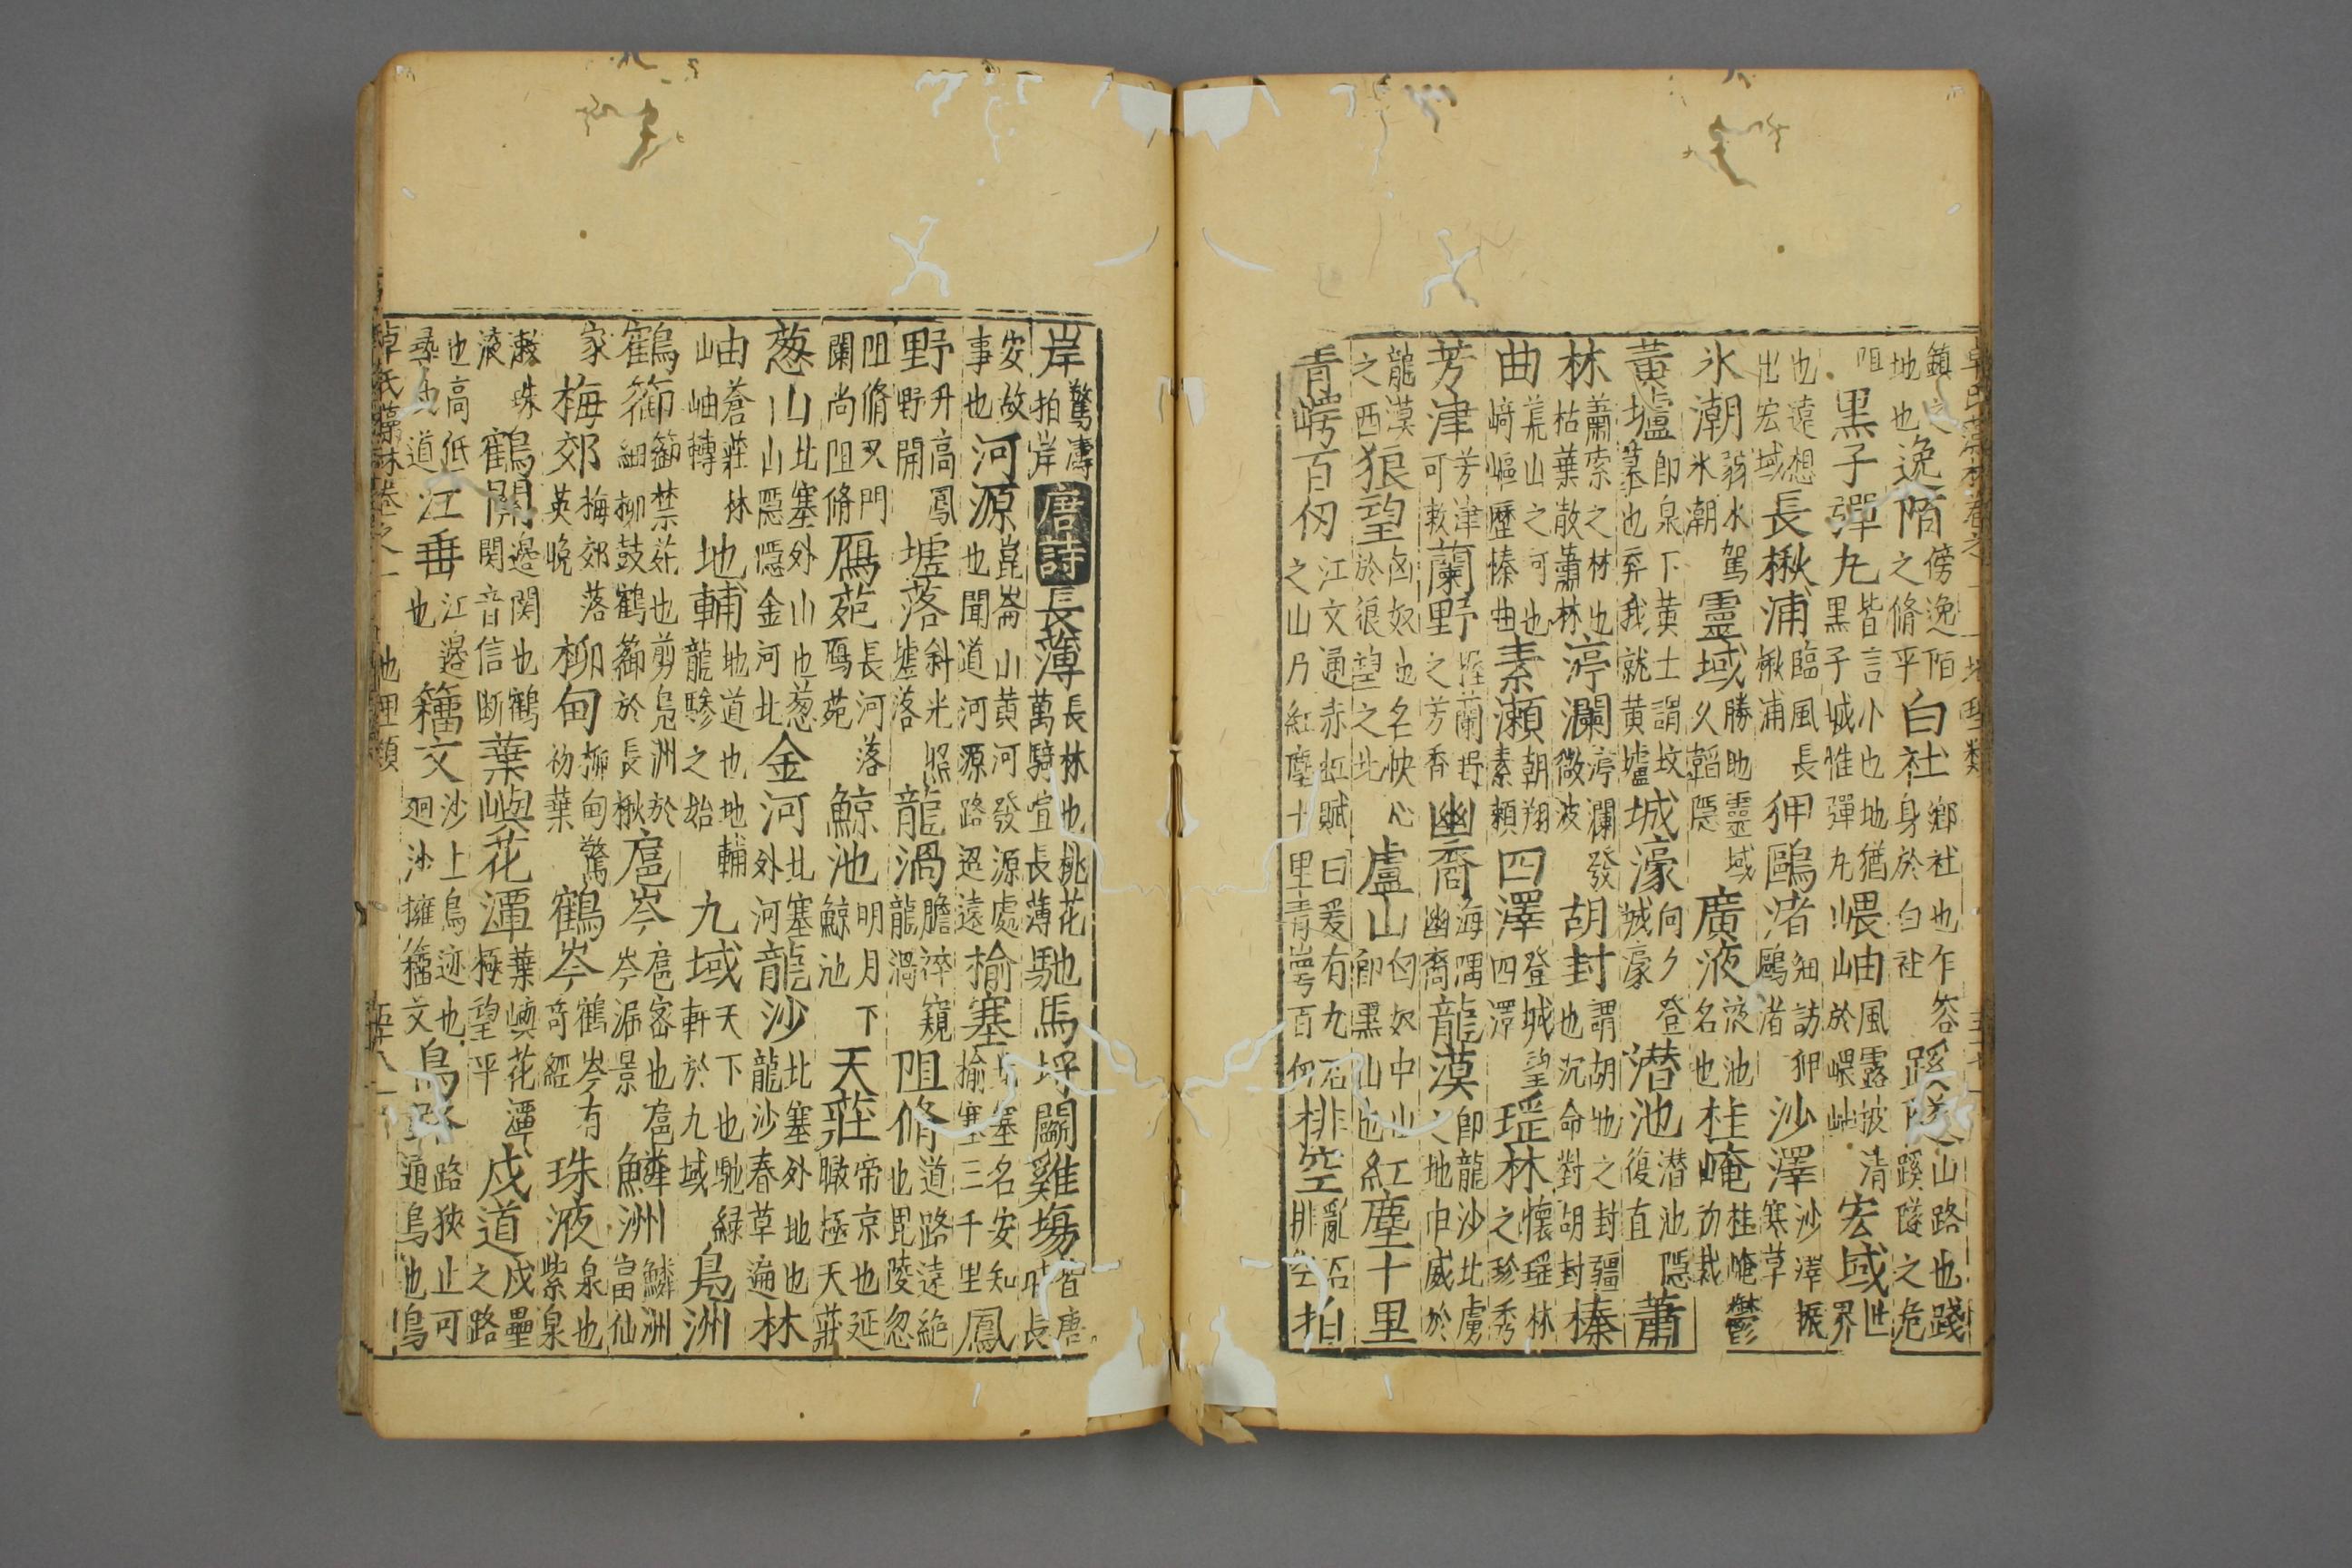 鎮之地也逸陌傍逸陌之脩平白社鄉社也乍容身於白社蹊隧山路也踐蹊隧之危
阻黑子彈丸皆言小也地猶黑子城惟彈丸嵔岫風露披清於嵔岫宏域世界
也遠想出宏域長楸浦臨風長楸浦狎鷗渚細訪狎鷗渚沙澤沙澤振寒草
氷潮弱水駕氷潮靈域勝地靈域久韜隱廣液液池名也桂崦桂崦鬱力裁
黃壚即泉下黃土謂墳墓也弃我就黃壚城濠向夕登城濠潜池潜池隱復直蕭
林蕭索之林也枯葉散蕭林渟瀾渟瀾發微波胡封謂胡地之封疆也沉命對胡封榛
曲荒山之河也﨑嶇歷榛曲素瀬朝翔素瀬四澤登城望四澤瑶林懷瑶林之珍秀
芳津芳津可敕蘭野蘭野之芳香幽裔海隅幽裔龍漠即龍沙北虜之地巾威於
龍漠之西狼望匈奴地名快心於狼望之北盧山匈奴中山即黑山也紅塵十里
青崿百仞江文通赤虹賦曰爰有九石之山乃紅塵十里青崿百仞排空亂石排空拍
岸驚濤拍岸唐詩長薄長林也桃花萬騎喧長薄馳馬埒鬭雞塲昔唐時長
安故事也河源崑崙山黃河發源處也聞道河源路迢遠榆塞邊塞名安知榆塞三千里鳳
野升高鳳野開墟落斜光照墟落龍渦膽碎窺龍渦阻脩道路遠絶也毘陵忽
阻脩又門闌尚阻脩鴈苑長河落鴈苑鯨池明月下鯨池天莊帝京也延瞰極天莊
葱山北塞外山也葱山隱隱金河北金河北塞外河龍沙北塞外地也龍沙春草遍林
岫蒼莊林岫轉地輔地道也地輔龍驂之始九域天下也馳軒於九域鳧洲緑
鶴籞籞禁苑也剪細柳鼓鶴籞鳧洲於於長楸扈岑扈岑也扈岑漏景鱗洲鱗洲富仙
家梅郊梅郊落英晚柳甸柳甸驚初葉鶴岑鶴岑有奇經珠液泉也紫泉
漱珠液鶴關邊関也鶴関音信断葉嶼花潭葉嶼花潭極望平戍道戍壘之路
也高低尋戍道江垂江邊也籒文沙上鳥迹也廻沙擁籒文鳥路路狹止可通鳥也鳥
卓氏藻林卷之一 地理類 五十八